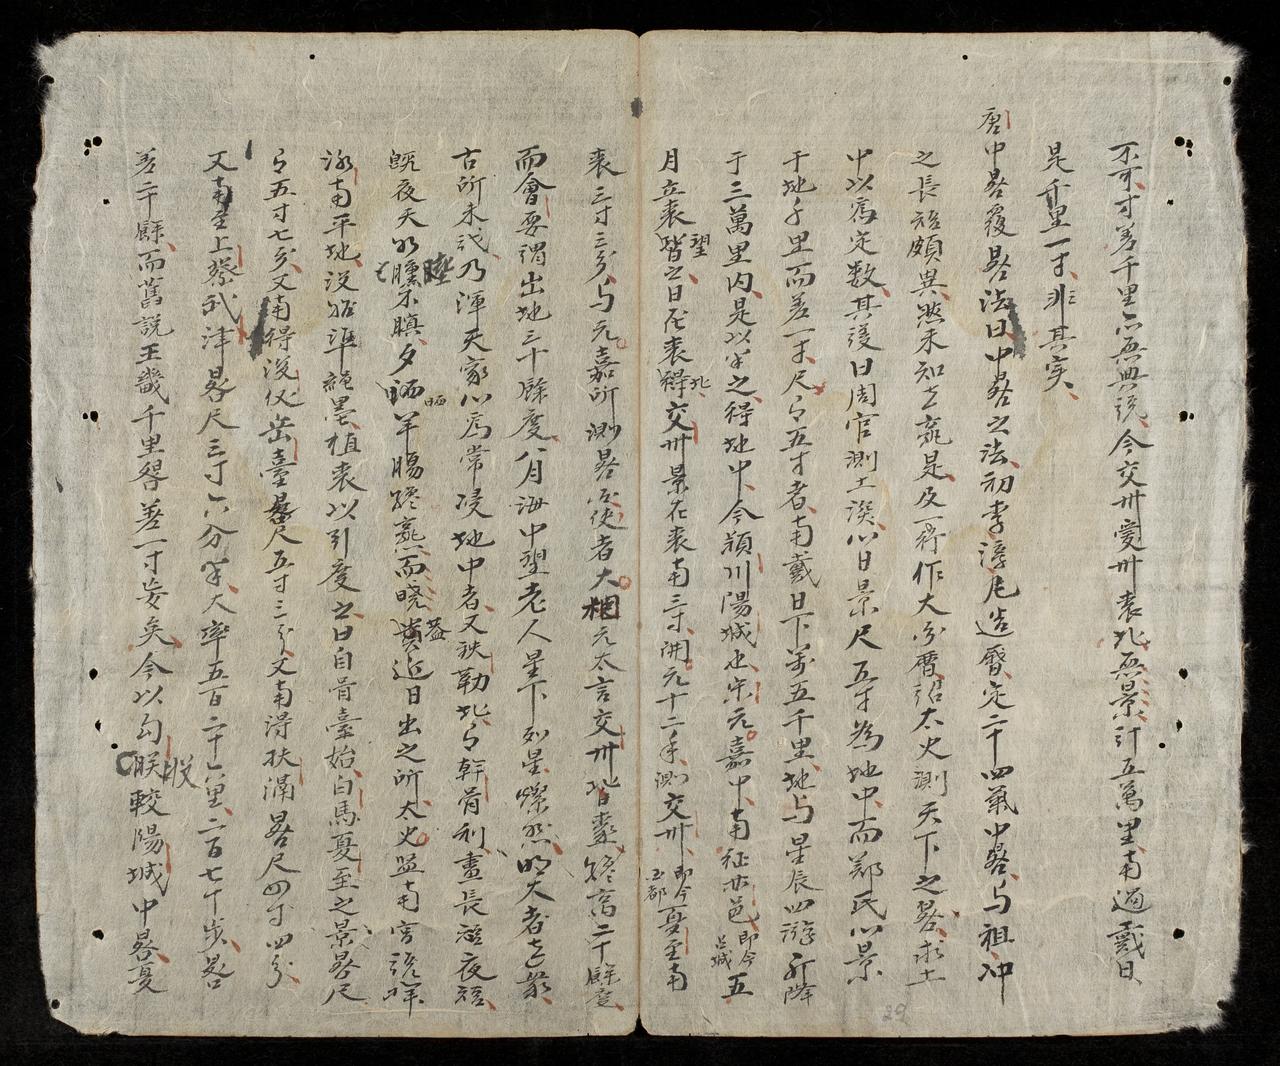 不可寸差千里亦無典說今交州愛州表北無景計五萬里南過戴日
是千里一寸非其实
唐中晷覆晷法曰中晷之法初李淳尾造曆定二十四氣中晷与祖冲
之長短頗異然未知孰是及一行作大衍曆詔太史測天下之晷求土
中以爲定數其議曰周官測土深以日景尺五寸為地中而鄭氏以景
于地千里而差一寸尺有五寸者南戴日下萬五千里地与星辰四游升降
于三萬里内是以半之得地中今潁川陽城也宋元嘉中南征林邑即今占城五
月立表望之日在表北交州景在表南三寸開元十二年測交州即今玉都夏至南
表三寸三分与元嘉所測畧同使者大相元太言交州望極纔高二十餘度
而會要謂出地三十餘度八月海中望老人星下列星燦然明大者甚衆
古所未識乃渾天家以爲常没地中者又鐵勒北有幹骨利晝長短夜短
旣夜天如曛不瞑夕胹羊髀纔熟而曉蓋近日出之所太史監南宮說擇
河南平地設水準繩墨植表以引度之日自滑臺始白馬夏至之景晷尺
有五寸七分又南得浚仪岳臺晷尺五寸三分又南得扶溝晷尺四寸四分
又南至上蔡武津晷尺三寸六分半大率五百二十一里二百七十步晷
差二寸餘而舊說王畿千里景差一寸妄矣今以勾股較陽城中晷夏